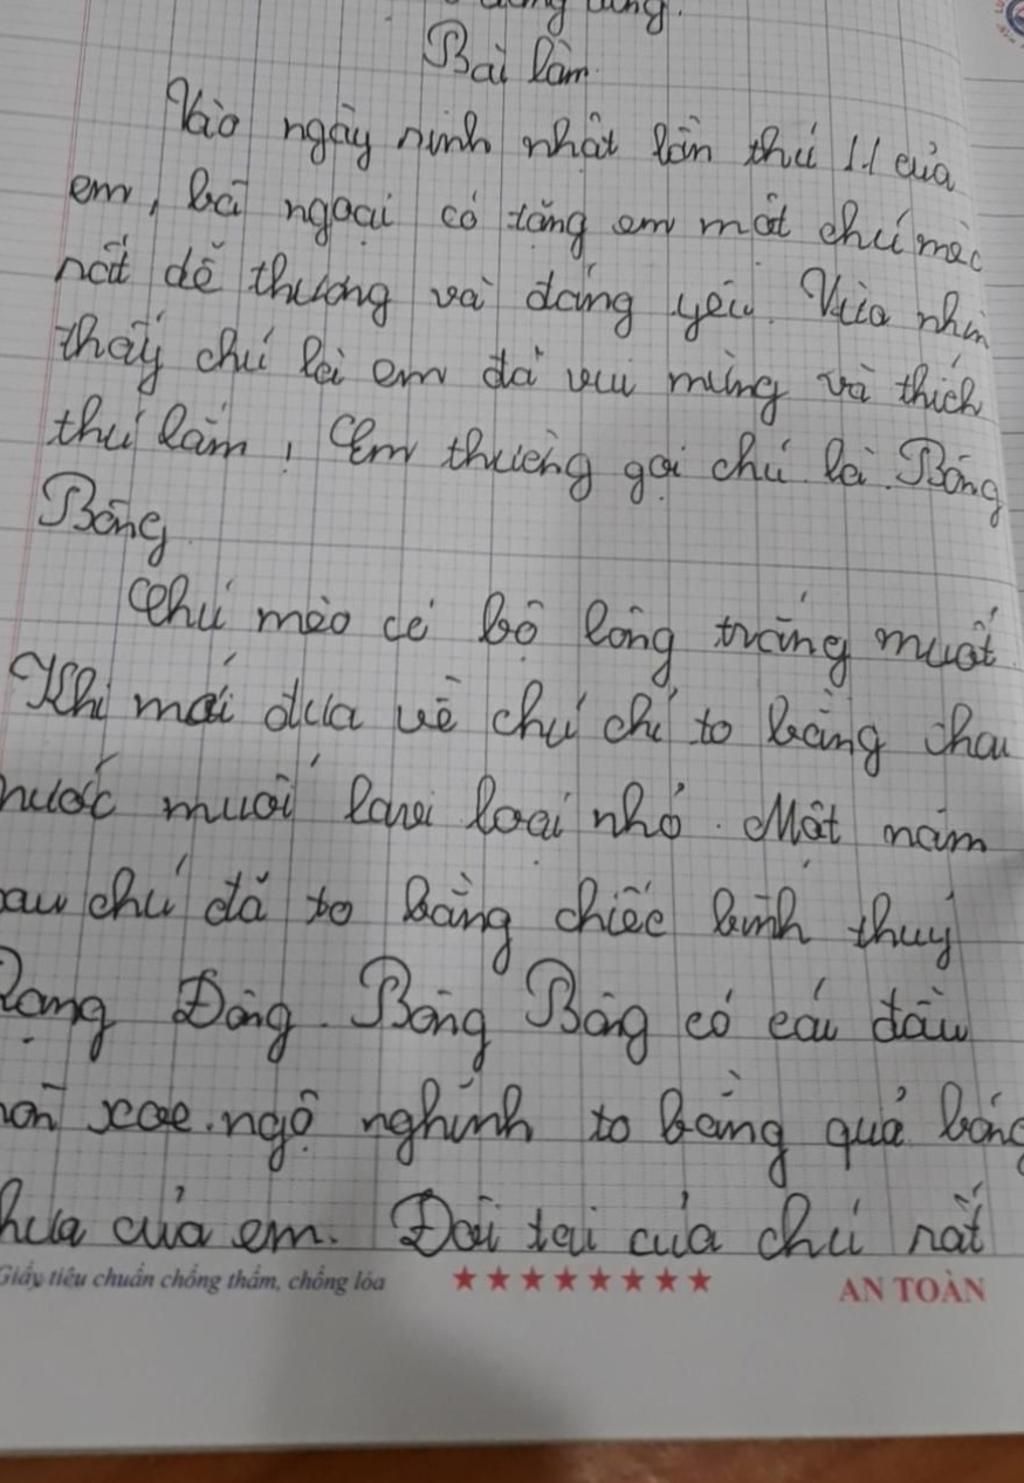 Bài làm
Vào ngày sinh nhật lần thứ 11 của
em, bà ngoại có tặng em một chú mèo
rất dễ thương và đáng yêu. Vừa nhìn
thấy chú là em đã vui mừng và thích
thú lắm, Em thường gọi chú là Bông
Bông
Chú mèo có bộ lông trắng muốt.
Khi mới đưa về chú chỉ to bằng chai
nước muối loại nhỏ. Một năm
sau chú đã to bằng chiếc bình thuỷ
Rạng Đông. Bông Bông có cái đầu
xoe. ngộ nghĩnh to bằng quả bóng
của em. Đôi tai của chú rất
Giấy tiêu chuẩn chống thấm, chống lóa ★★★★★★★★ AN TOÀN